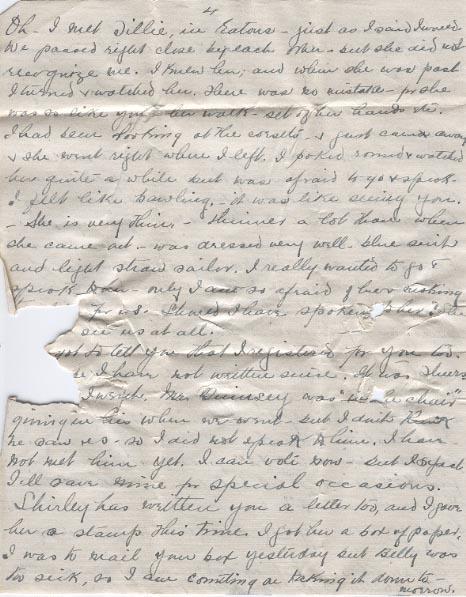 4
Oh - I met Dillie, in Eatons - just as I said I would
We passed right close by each other - but she did not
recognize me. I knew her, and when she was past
I turned & watched her. There was no mistake - for she
was so like you, her walk - set of her hands etc.
I had been looking at the corsets - & just came away
& she went right where I left. I poked round & watched
her quite a while but was afraid to go & speak.
I felt like bawling, - it was like seeing you.
- She is very thin, - thinner a lot than when
she came out - was dressed very well - blue suit
and light straw sailor. I really wanted to go &
speak too - only I am so afraid of her
for us. Should I have spoken to her?
see us at all.
not to tell you that I registered for you too.
I have not written since. It was
I wrote. Mr. was
going in his when we went - but I don't think
he saw us - so I did not speak to him. I have
not met him yet. I can vote now - but I expect
I'll save mine for special occasions.
Shirley has written you a letter too, and I gave
her a stamp this time. I got her a box of paper.
I was to mail your box yesterday but Billy was
too sick, so I am counting on taking it down to-
morrow.